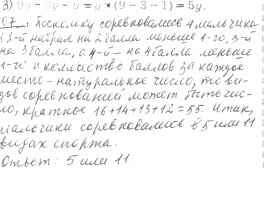 3) 9y - 3y - y = y * (9-3-1) = 5y.
С7. Поскольку соревновались 4 мальчика
2-й набрал на 2 балла меньше 1-го, 3-й
на 3 балла, а 4-й - на 4 балла меньше
1-го и количество баллов за каждое
место - натуральное число, то ви-
дов соревнований может быть чис-
ло, кратное 16+14+13+12=55. Итак,
мальчики соревновались в 5 или 11
видах спорта.
Ответ: 5 или 11